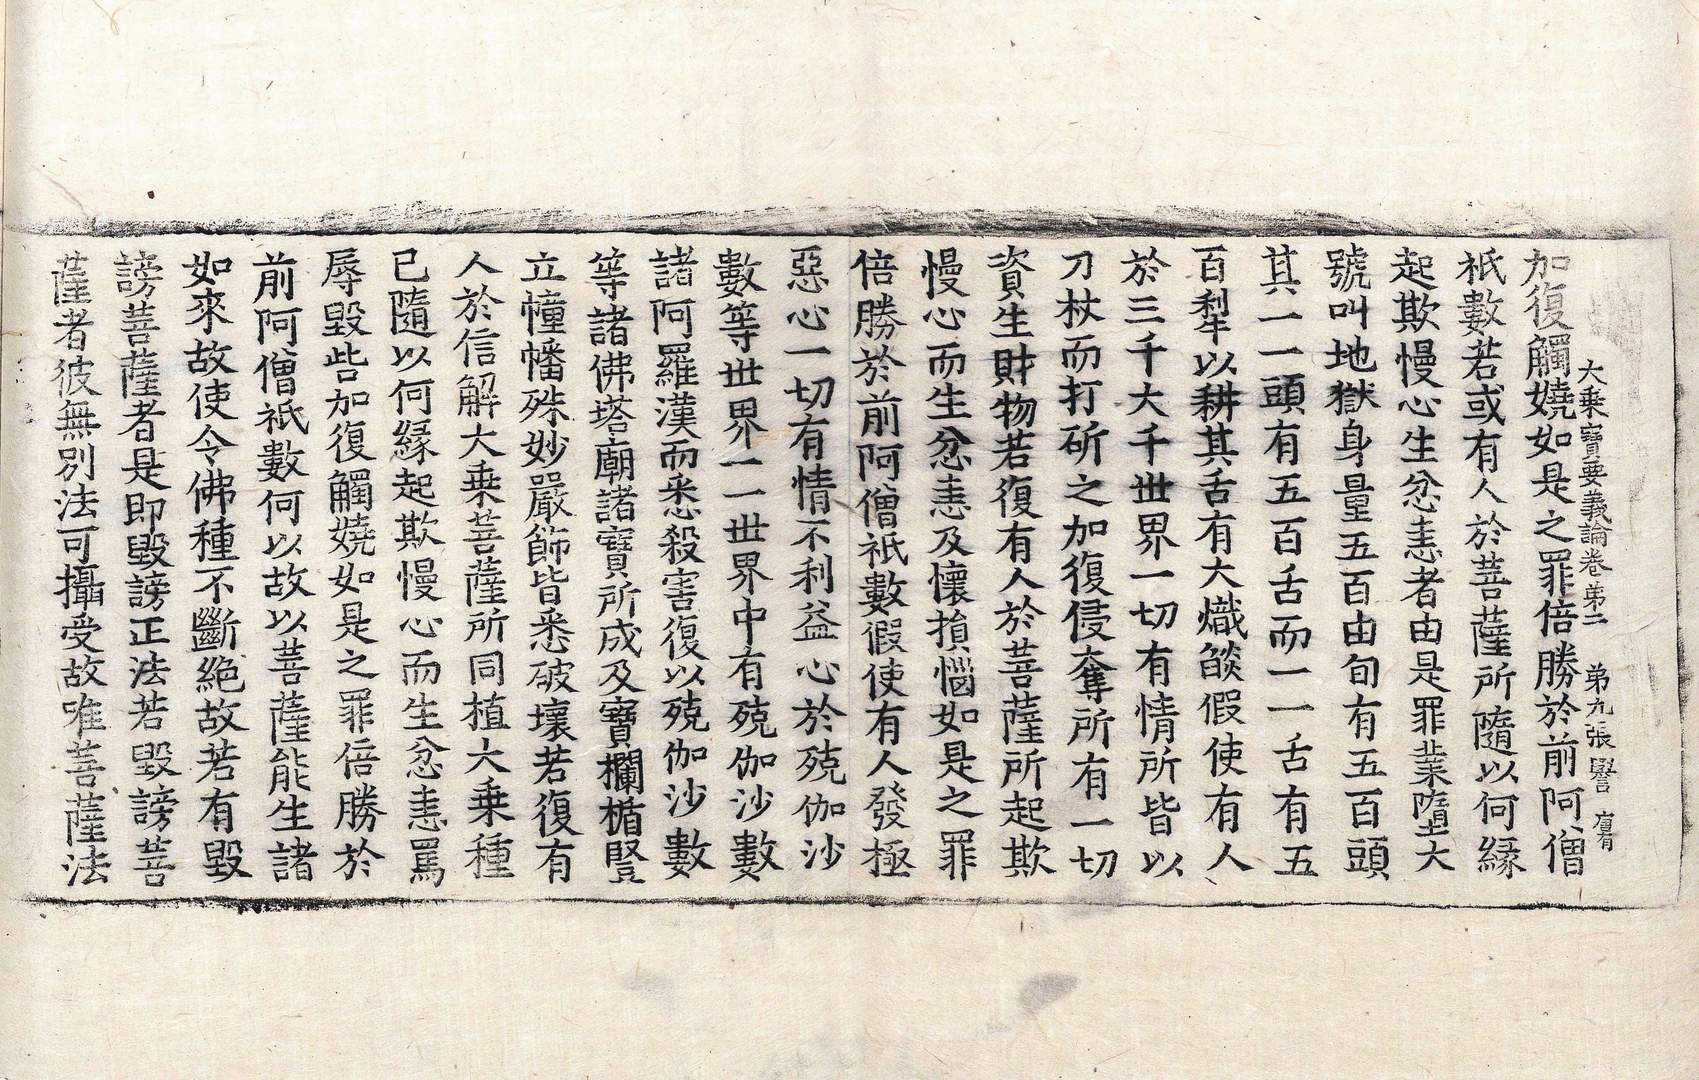 大乗寶要義論卷第二 第九張 譽
加復觸嬈如是之罪倍勝於前阿僧
祇數若或有人於菩薩所隨以何緣
起欺慢心生忿恚者由是罪業墮大
號叫地獄身量五百由旬有五百頭
其一一頭有五百舌而一一舌有五
百犁以耕其舌有大熾燄假使有人
於三千大千世界一切有情所皆以
刀杖而打斫之加復侵奪所有一切
資生財物若復有人於菩薩所起欺
慢心而生忿恚及懷損惱如是之罪
倍勝於前阿僧祇數假使有人發極
惡心一切有情不利益心於殑伽沙
數等世界一一世界中有殑伽沙數
諸阿羅漢而悉殺害復以殑伽沙數
等諸佛塔廟諸寶所成及寶欄楯豎
立幢幡殊妙嚴飾皆悉破壞若復有
人於信解大乘菩薩所同植大乘種
已隨以何緣起欺慢心而生忿恚罵
辱毀呰加復觸嬈如是之罪倍勝於
前阿僧祇數何以故以菩薩能生諸
如來故使令佛種不斷絕故若有毀
謗菩薩者是即毀謗正法若毀謗菩
薩者彼無別法可攝受故唯菩薩法